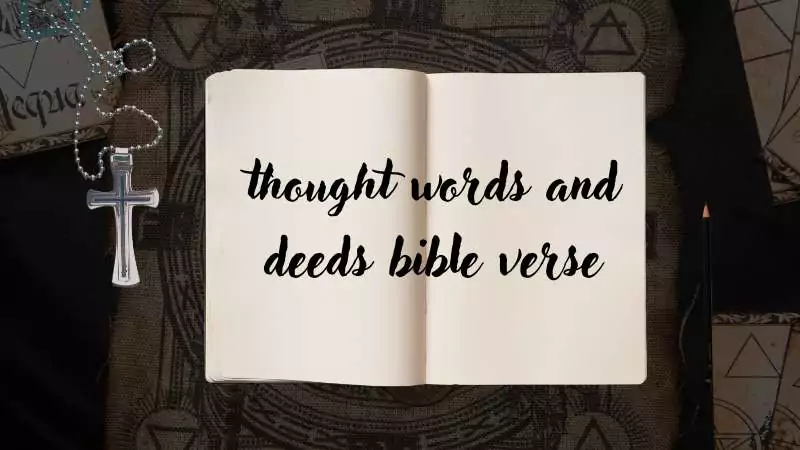 thought words and
deeds bible verse